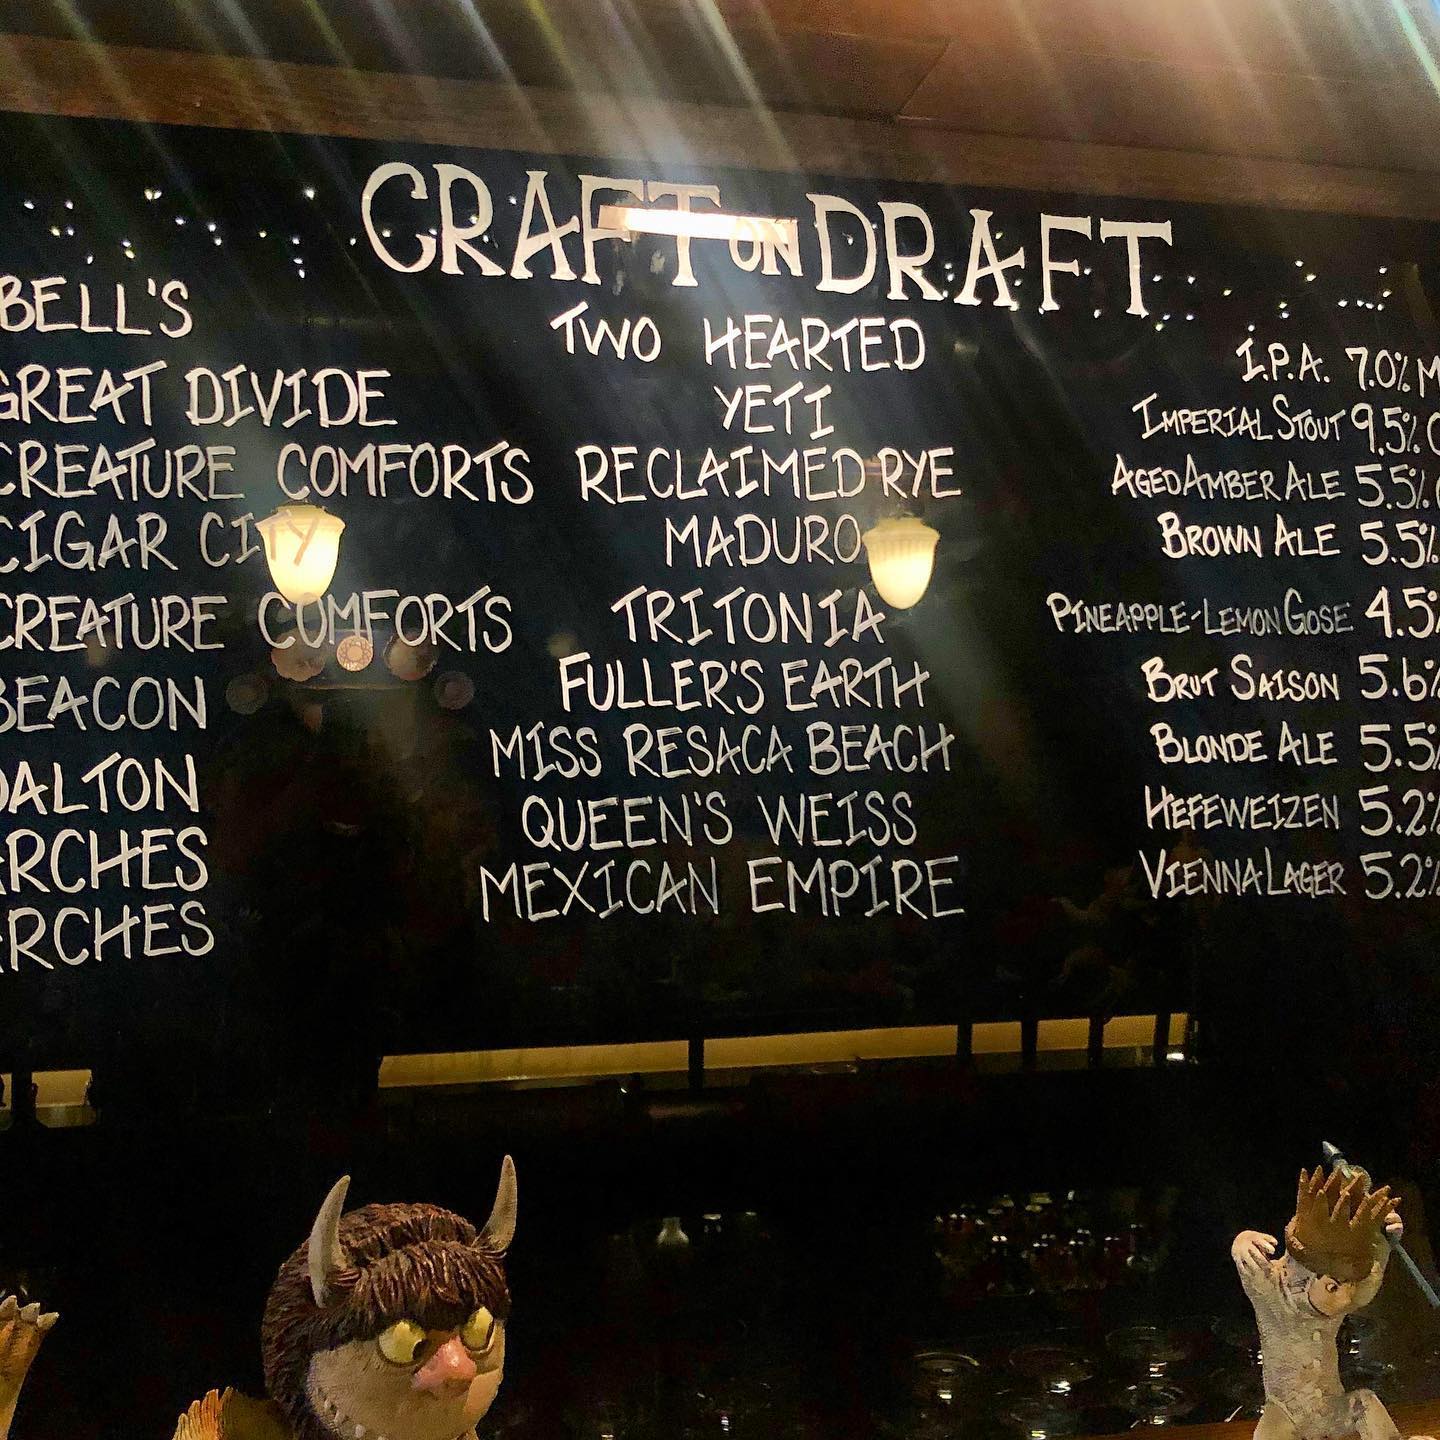 CRAFT ON DRAFT
BELL'S TWO HEARTED I.P.A. 7.0% M
GREAT DIVIDE YETI IMPERIAL STOUT 9.5% C
CREATURE COMFORTS RECLAIMED RYE AGED AMBER ALE 5.5%
CIGAR CITY MADURO BROWN ALE 5.5%
CREATURE COMFORTS TRITONIA PINEAPPLE-LEMON GOSE 4.5%
BEACON FULLER'S EARTH BRUT SAISON 5.6%
DALTON MISS RESACA BEACH BLONDE ALE 5.5%
ARCHES QUEEN'S WEISS HEFEWEIZEN 5.2%
ARCHES MEXICAN EMPIRE VIENNA LAGER 5.2%